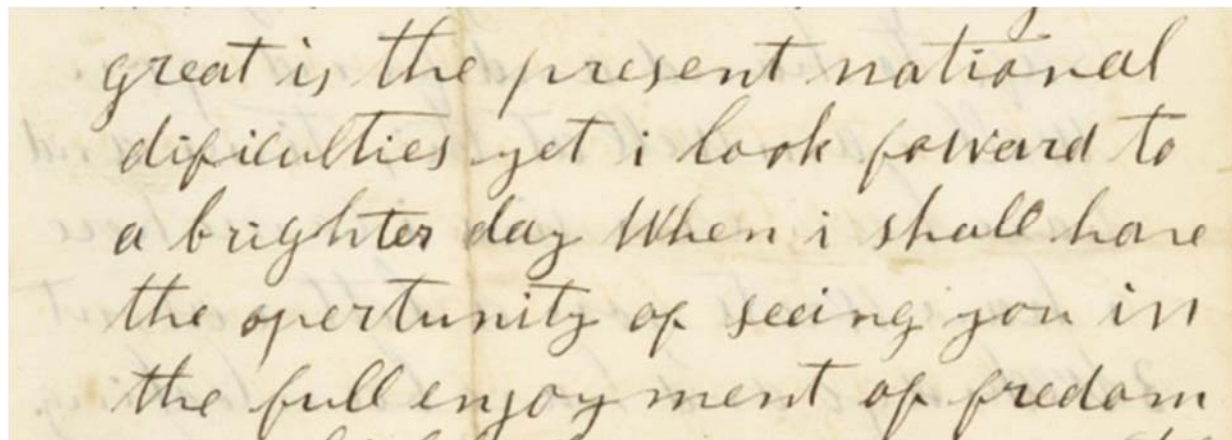 great is the present national
dificulties yet i look foward to
a brighter day When i shall have
the opertunity of seeing you in
the full enjoyment of fredom